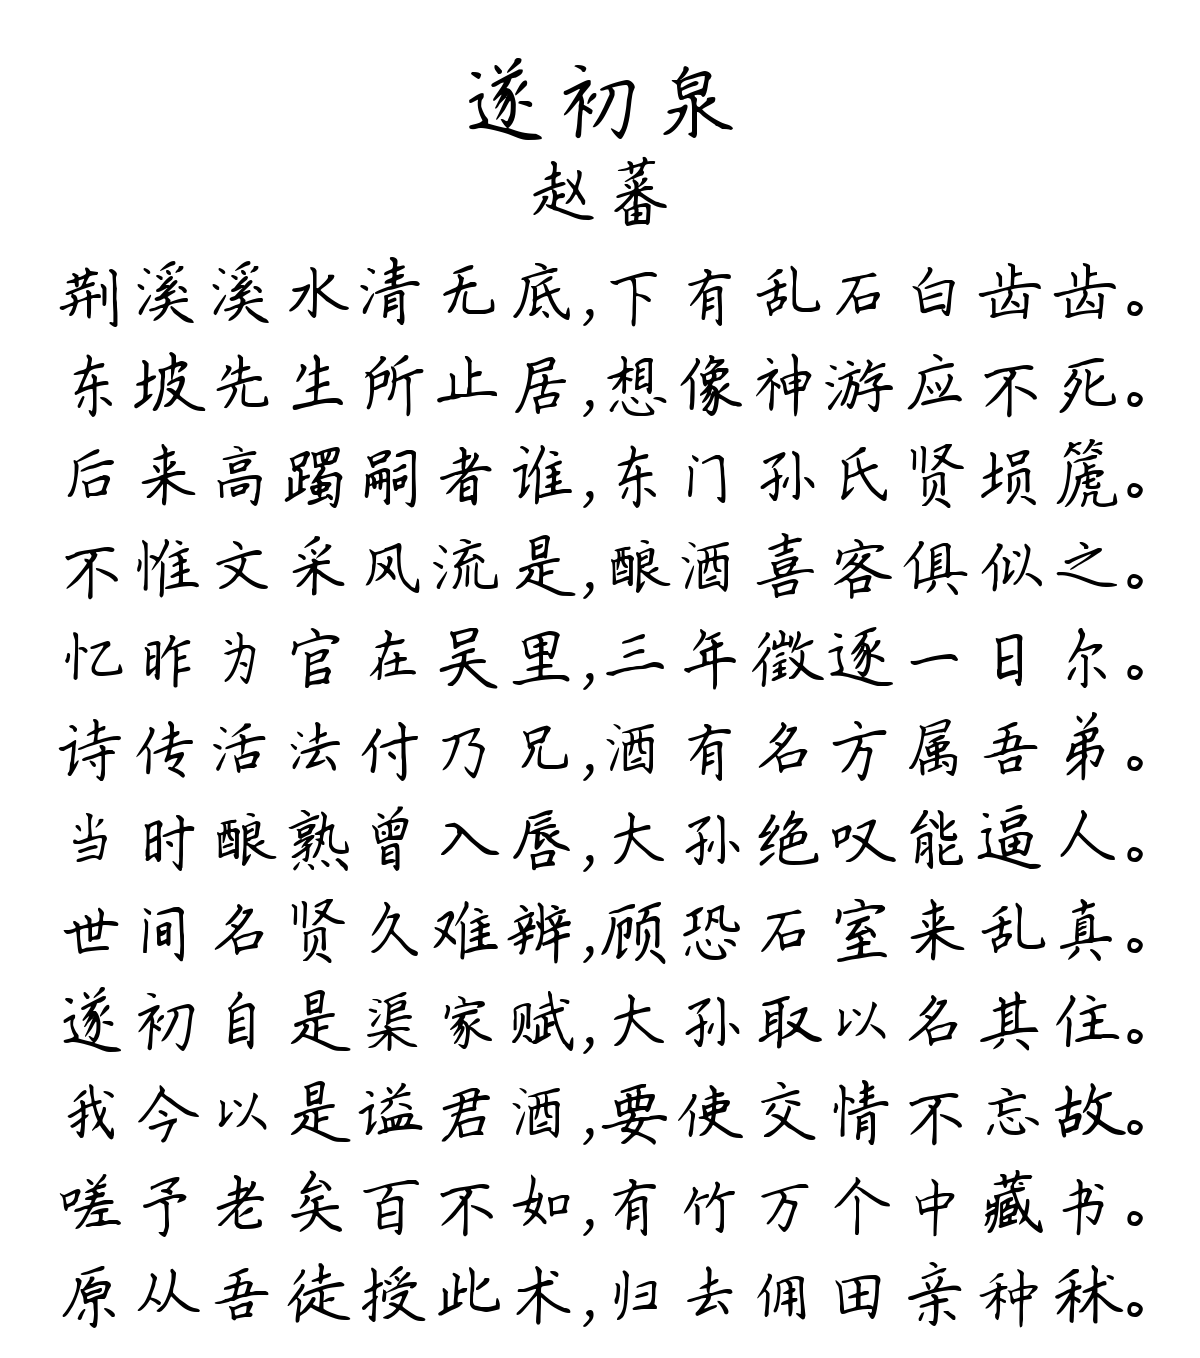 遂初泉
赵蕃
荆溪溪水清无底,下有乱石白齿齿。
东坡先生所止居,想像神游应不死。
后来高躅嗣者谁,东门孙氏贤埙篪。
不惟文采风流是,酿酒喜客俱似之。
忆昨为官在吴里,三年徵逐一日尔。
诗传活法付乃兄,酒有名方属吾弟。
当时酿熟曾入唇,大孙绝叹能逼人。
世间名贤久难辨,顾恐石室来乱真。
遂初自是渠家赋,大孙取以名其住。
我今以是谥君酒,要使交情不忘故。
嗟予老矣百不如,有竹万个中藏书。
原从吾徒授此术,归去佣田亲种秫。